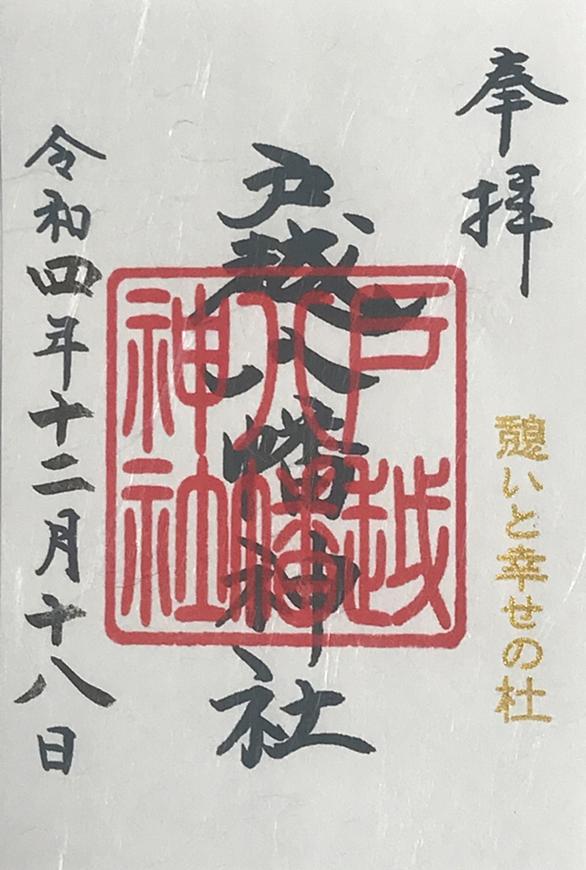 奉拝
憩いと幸せの杜
戸越八幡神社
戸越
八幡
神社
令和四年十二月十八日